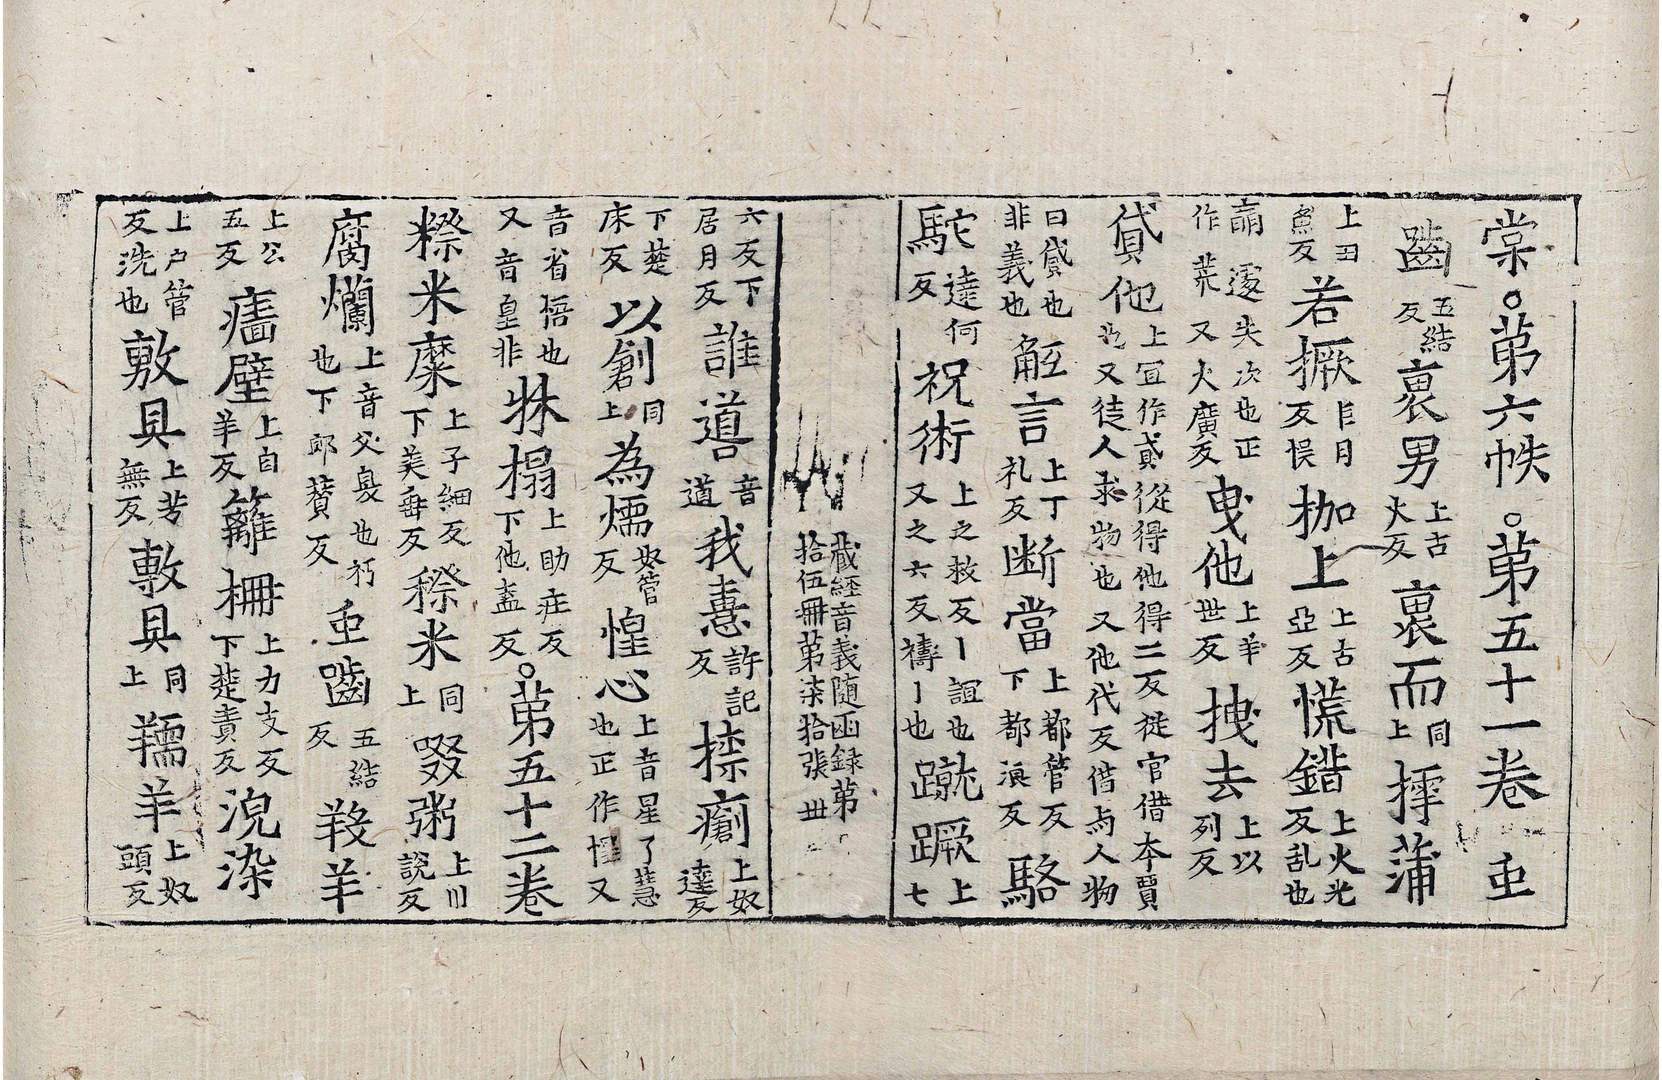 棠。第六帙。第五十一卷 𠱥
齧五結反裹男上古火反裹而同上摴蒲
上田魚反若撅巨月反悮枷上上古亞反慌錯上火光反乱也
作業又火廣反曳他上羊世反拽去上以列反
貸他上宜作貣從得他得二反從官借本賈也又徒人求物也又他代反借与人物
曰貸也非義也觝言上丁礼反断當上都管反下都滇反駱
駝達何反祝術上之救反丨詛也又之六反禱丨也蹴蹶上七
藏經音義随函録第
拾伍冊第柒拾張 丗
六反下居月反誰噵音道我憙許記反捺瘌上奴達反
下楚床反以創同上為煗奴管反惶心上音星了慧也正作惺又
音省悟也又音皇非牀榻上助庄反下他盍反。第五十二卷
穄米糜上子細反下美垂反穄米同上啜粥上川說反
腐爛上音父臭也朽也下郎賛反𠱥齧五結反羖羊
上公五反墻壁上自羊反籬柵上力支反下楚責反涴染
上户管反洗也敷具上芳無反敷具同上羺羊上奴頭反